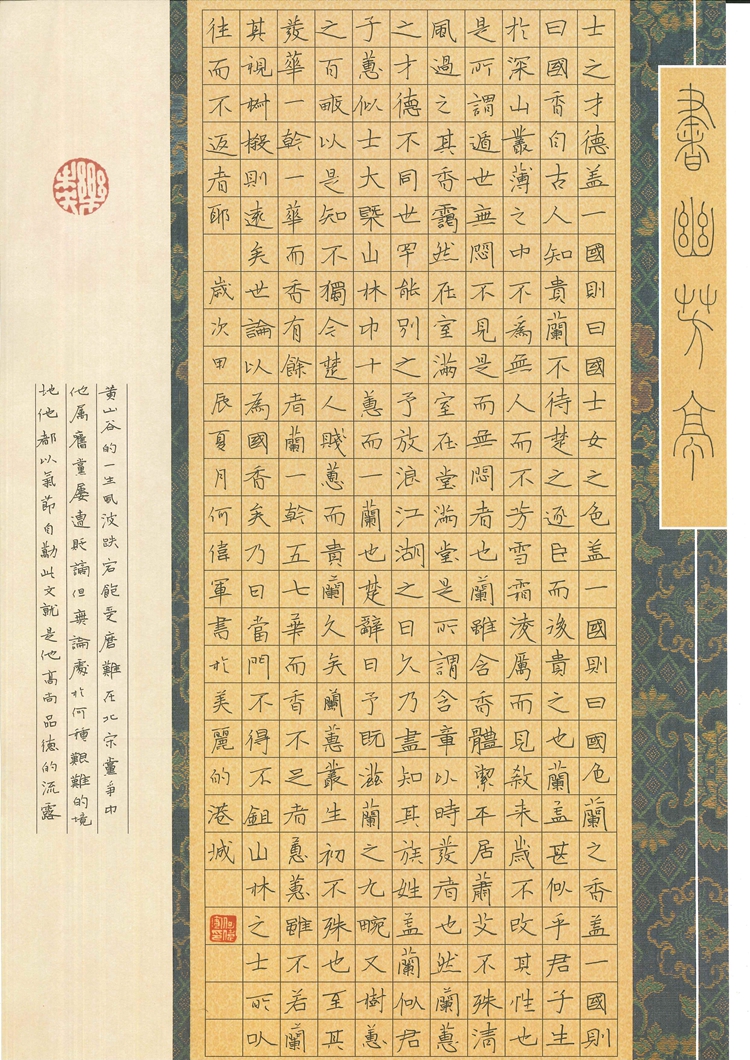 書幽芳亭
士之才德盖一國則曰國士女之色盖一國則曰國色蘭之香盖一國則
曰國香自古人知貴蘭不待楚之逐臣而後貴之也蘭盖甚似乎君子生
於深山叢薄之中不為無人而不芳雪霜凌厲而見殺来歲不改其性也
是所謂遁世無悶不見是而無悶者也蘭雖含香體潔平居蕭艾不殊清
風過之其香靄然在室滿室在堂滿堂是所謂含章以時發者也然蘭蕙
之才德不同世罕能别之予放浪江湖之日久乃盡知其族姓盖蘭似君
子蕙似士大槩山林中十蕙而一蘭也楚辭曰予既滋蘭之九畹又樹蕙
之百畝以是知不獨今楚人賤蕙而貴蘭久矣蘭蕙叢生初不殊也至其
發華一幹一華而香有餘者蘭一幹五七華而香不足者蕙蕙雖不若蘭
其視椒樧則遠矣世論以為國香矣乃曰當門不得不鉏山林之士所以
往而不返者耶 歲次甲辰夏月何偉軍書於美麗的港城
黄山谷的一生風波跌宕飽受磨難在北宗黨争中
他属舊黨屡遭貶謫但無論處於何種艱難的境
地他都以氣節自勵此文就是他高尚品德的流露